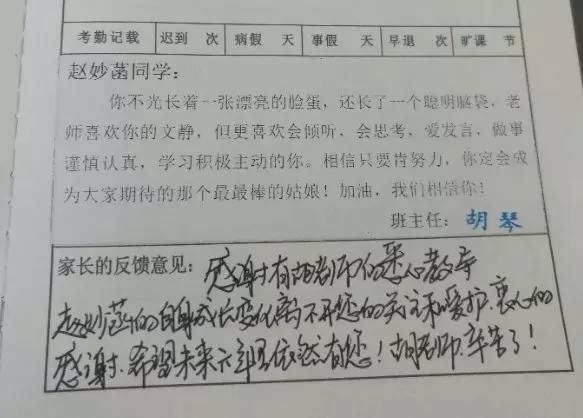 考勤记载 迟到 次 病假 天 事假 天 早退 次 旷课 节
赵妙菡同学：
你不光长着一张漂亮的脸蛋，还长了一个聪明脑袋，老
师喜欢你的文静，但更喜欢会倾听，会思考，爱发言，做事
谨慎认真，学习积极主动的你。相信只要肯努力，你定会成
为大家期待的那个最最棒的姑娘！加油，我们相信你！
班主任：胡琴
家长的反馈意见：感谢有胡老师的悉心教导
赵妙菡的自身成长变化离不开您的关注和爱护，衷心的
感谢，希望未来六年里依然有您！胡老师，辛苦了！